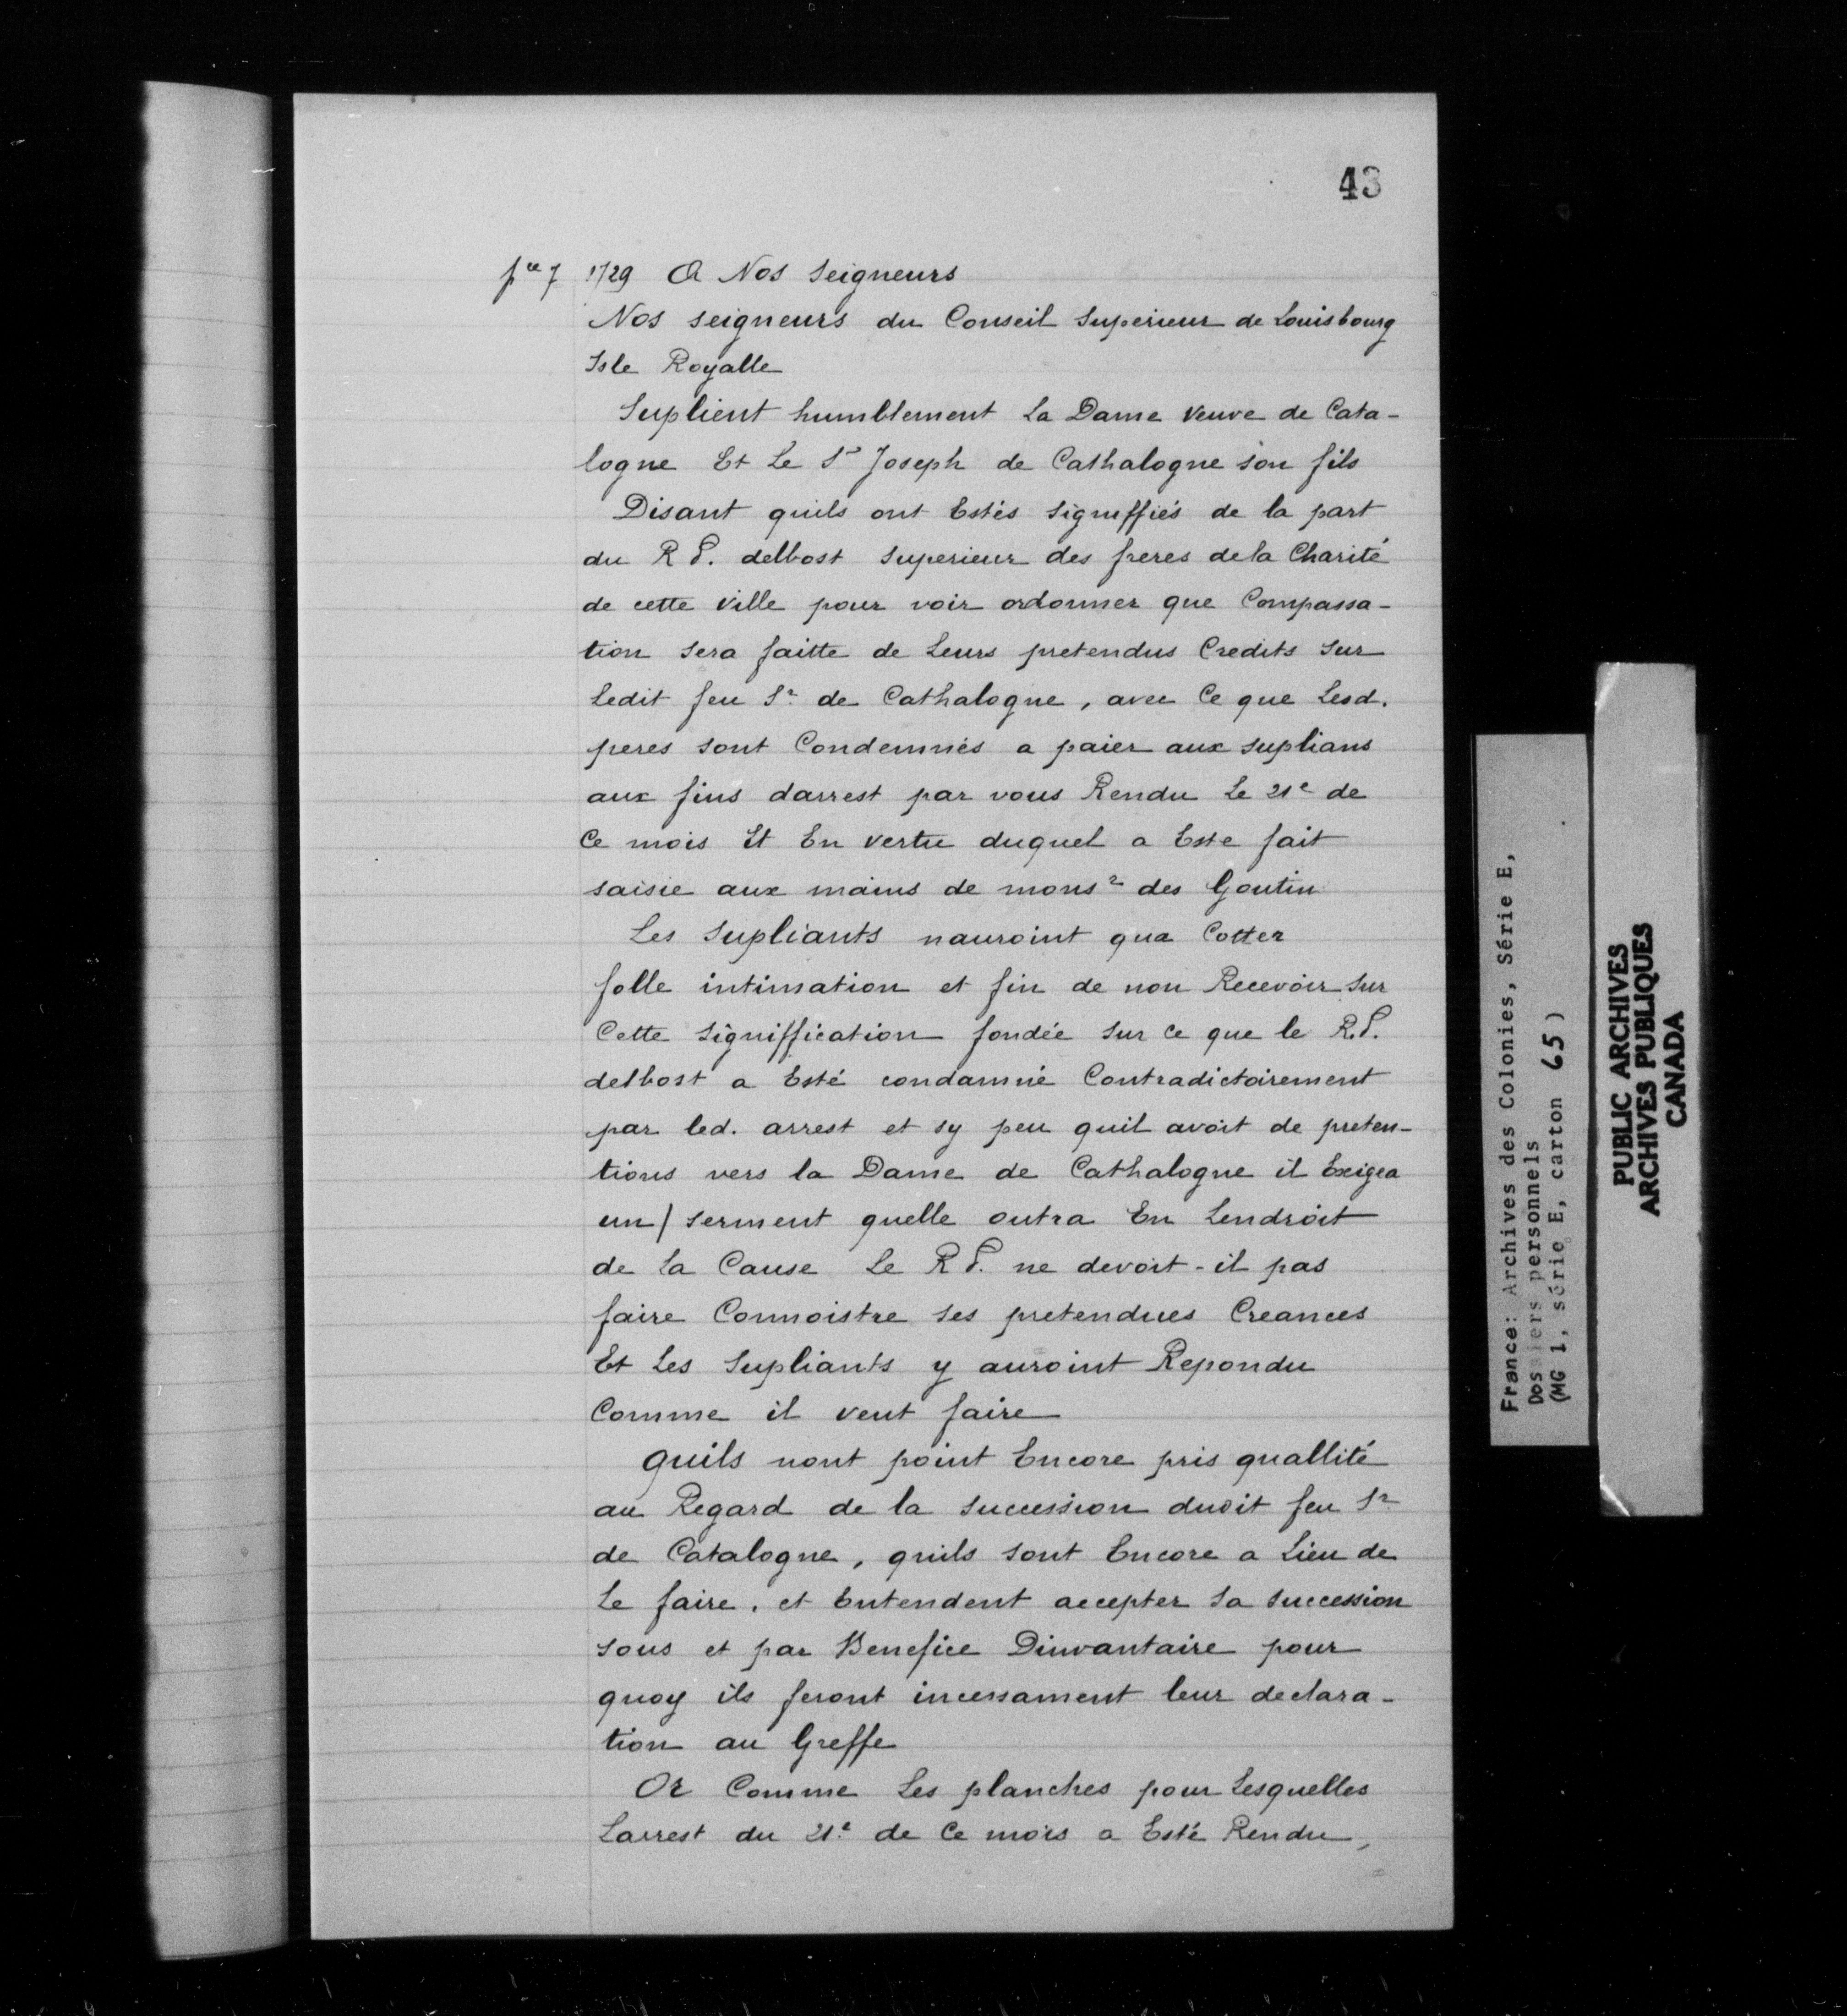 43
pce 7 1729 A Nos Seigneurs
Nos seigneurs du Conseil Superieur de Louisbourg
Isle Royalle
Suplient humblement La Dame veuve de Cata-
logne Et Le Sr Joseph de Cathalogne son fils
Disant quils ont Estés signiffiés de la part
du R P. delbost Superieur des freres dela Charité
de cette ville pour voir ordonner que Compassa-
tion sera faitte de Leurs pretendus Credits sur
Ledit feu Sr de Cathalogne, avec Ce que Lesd.
peres sont Condemnés a paier aux suplians
aux fins darrest par vous Rendu Le 21e de
Ce mois Et En vertu duquel a Este fait
saisie aux mains de monsr des Goutin
Les Supliants nauroint qua Cotter
folle intimation et fin de non Recevoir sur
Cette Signiffication fondée sur ce que le R.P.
delbost a Esté condamné Contradictoirement
par led. arrest et sy peu quil avoit de preten-
tions vers la Dame de Cathalogne il Exigea
un/ serment quelle outra En Lendroit
de La Cause Le R P. ne devoit-il pas
faire Connoistre ses pretendues Creances
Et Les Supliants y auroint Repondu
Comme il veut faire
quils nont point Encore pris quallité
au Regard de la succession dudit feu Sr
de Catalogne, quils sont Encore a Lieu de
Le faire, et Entendent accepter Sa succession
sous et par Benefice Dinvantaire pour
quoy ils feront incessament leur declara-
tion au Greffe
Or Comme Les planches pour Lesquelles
Larrest du 21e de Ce mois a Esté Rendu,
France: Archives des Colonies, Série E,
Dossiers personnels
(MG 1, série E, carton 65)
PUBLIC ARCHIVES
ARCHIVES PUBLIQUES
CANADA